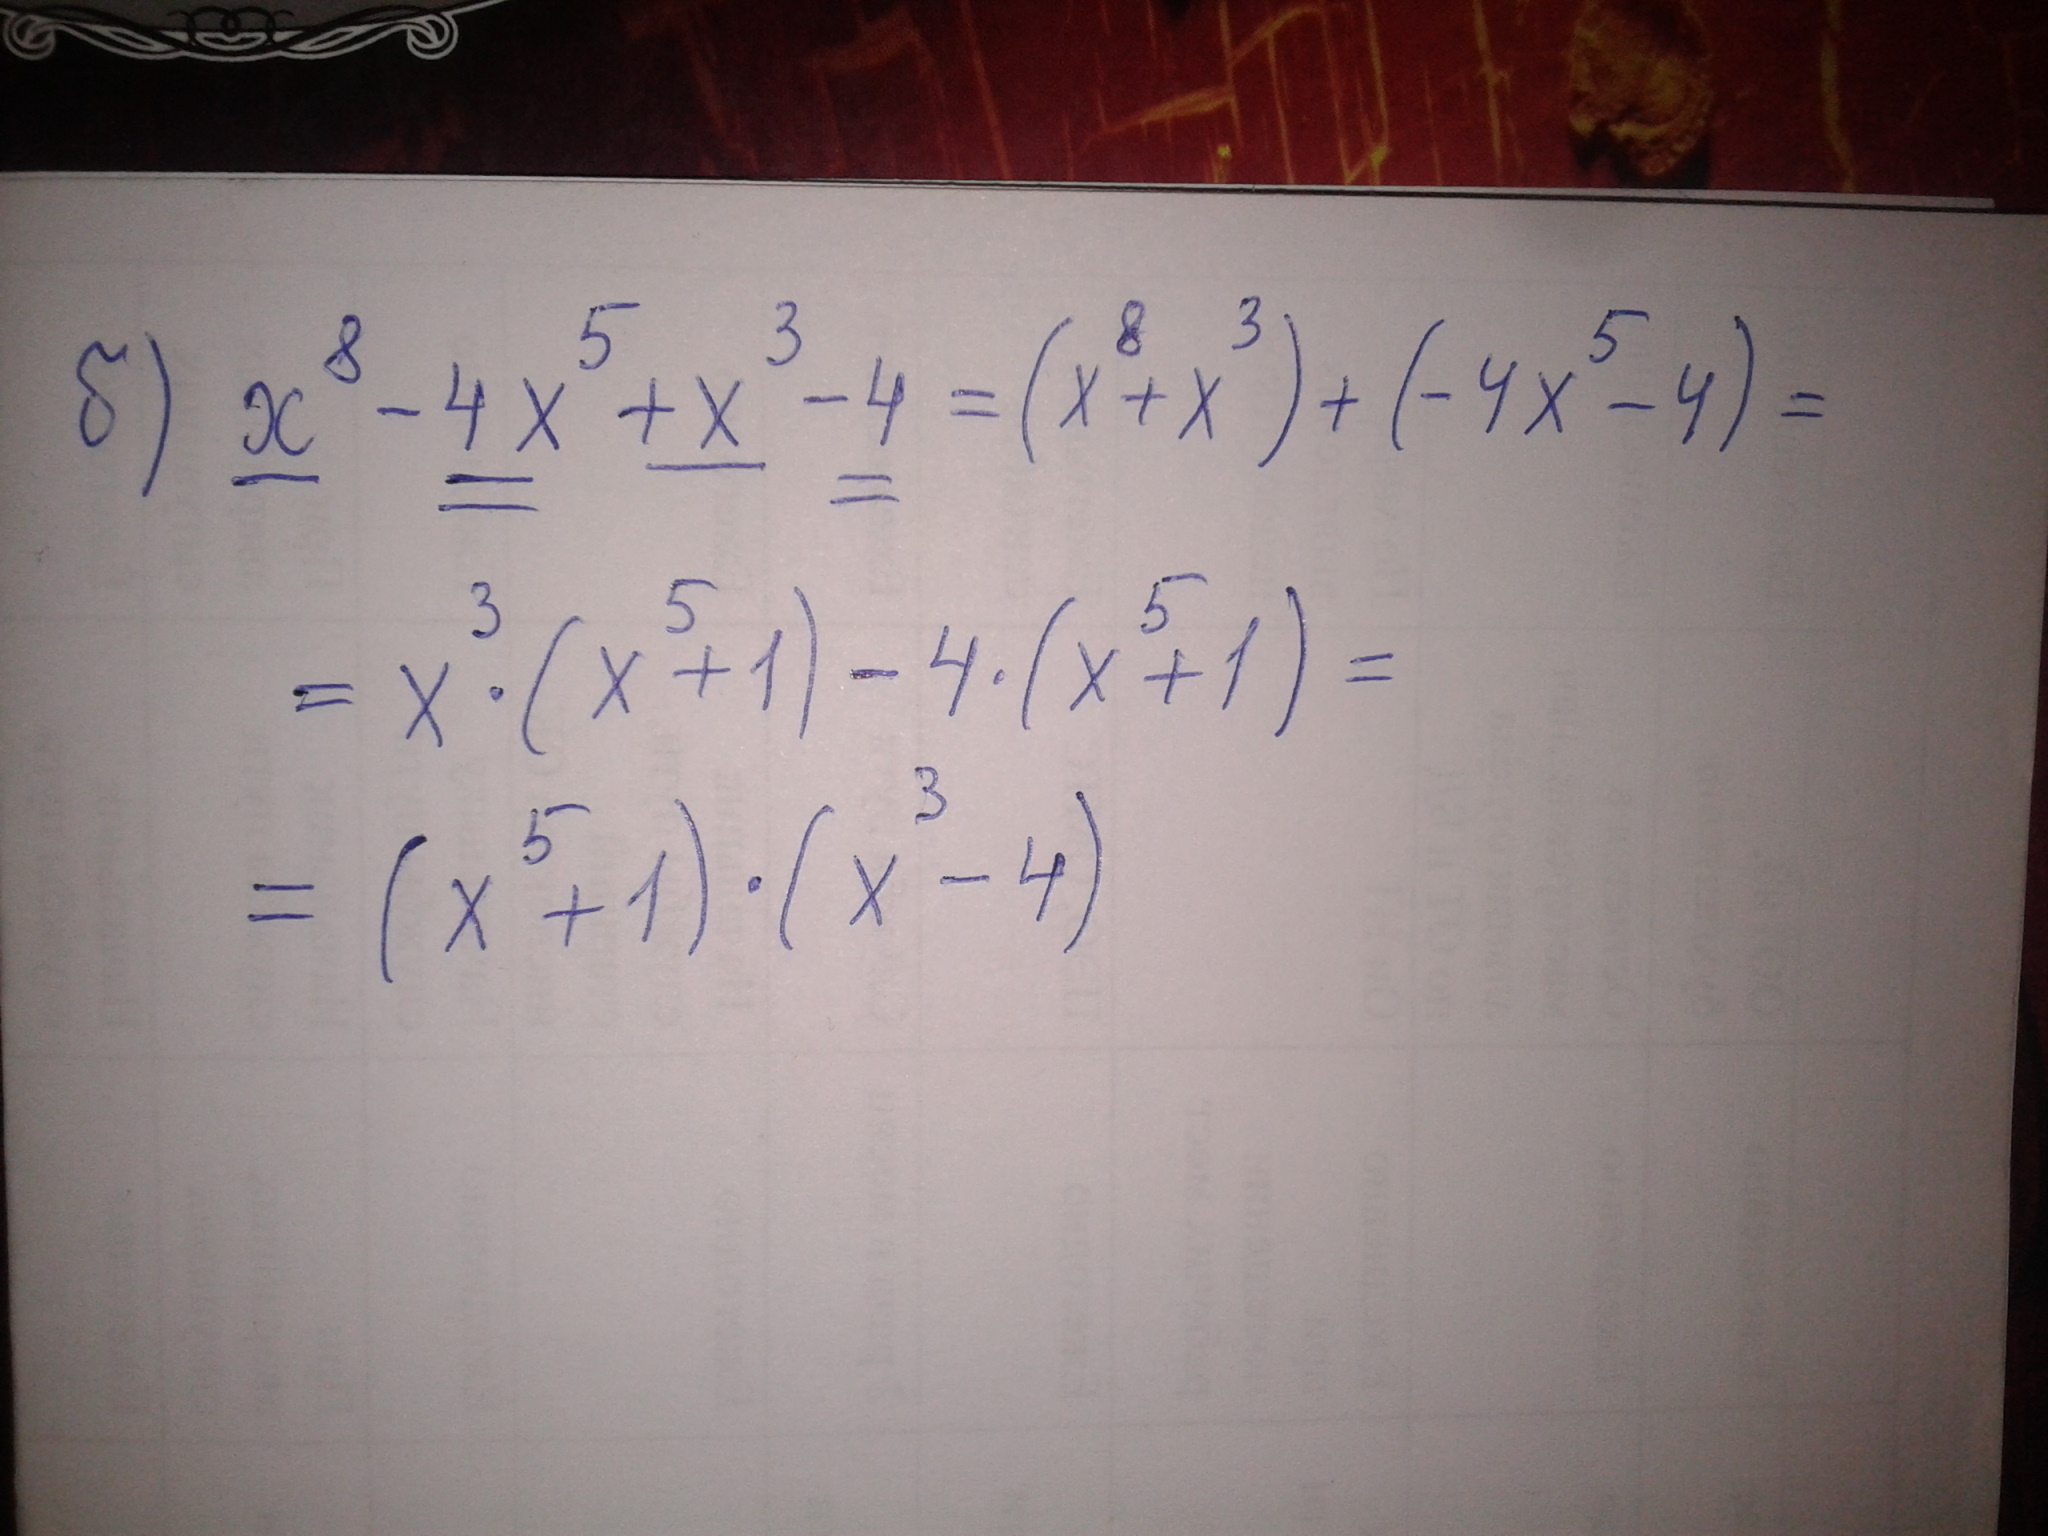 б) x⁸ - 4x⁵ + x³ - 4 = (x⁸ + x³) + (-4x⁵ - 4) =
= x³ · (x⁵ + 1) - 4 · (x⁵ + 1) =
= (x⁵ + 1) · (x³ - 4)